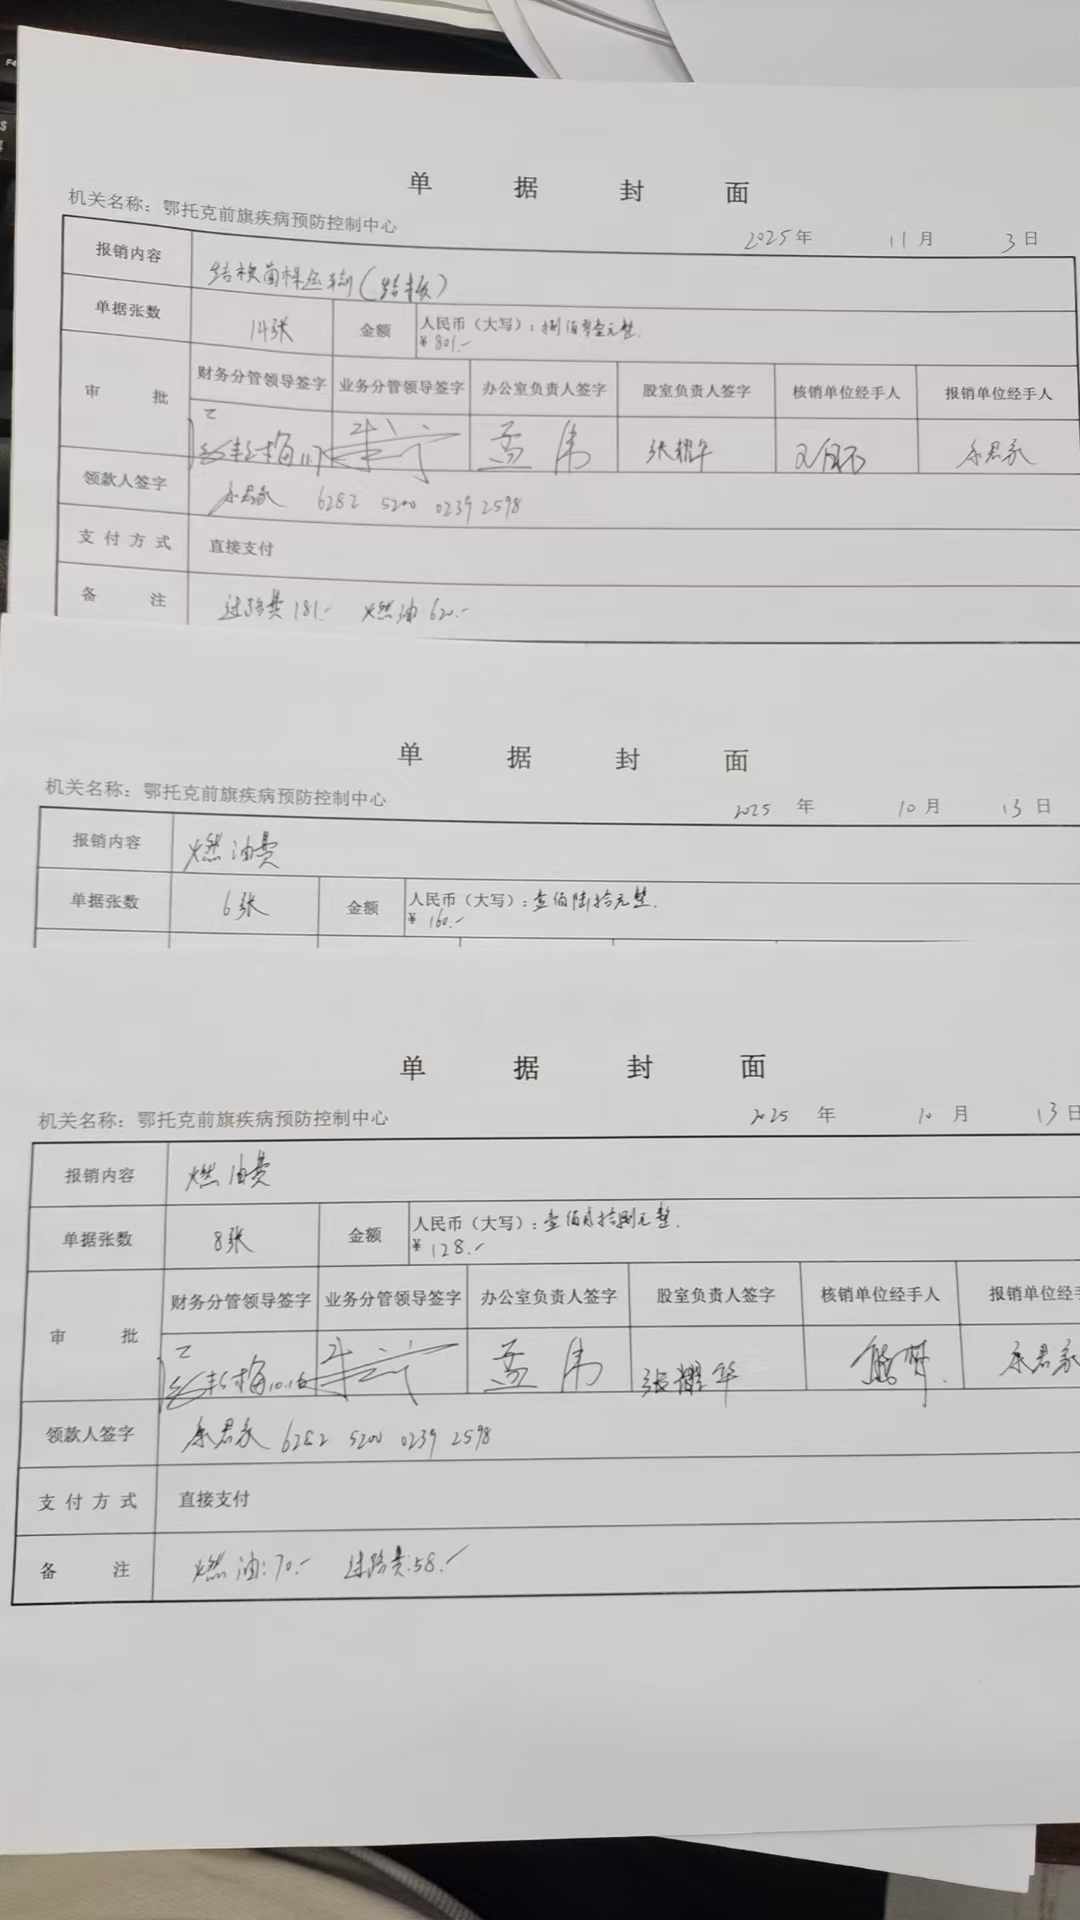 单据封面
机关名称：鄂托克前旗疾病预防控制中心
2025年 11月 3日
报销内容 结核菌株运输（结核）
单据张数 14张 金额 人民币（大写）：捌佰零壹元整.
¥ 801.-
审批 财务分管领导签字 业务分管领导签字 办公室负责人签字 股室负责人签字 核销单位经手人 报销单位经手人
孟伟 张耀华
领款人签字 6282 5200 0239 2598
支付方式 直接支付
备注 过路费181.- 燃油620.-
单据封面
机关名称：鄂托克前旗疾病预防控制中心
2025 年 10月 13日
报销内容 燃油费
单据张数 6张 金额 人民币（大写）：壹佰陆拾元整.
¥ 160.-
单据封面
机关名称：鄂托克前旗疾病预防控制中心
2025 年 10月 13日
报销内容 燃油费
单据张数 8张 金额 人民币（大写）：壹佰贰拾捌元整.
¥ 128.-
审批 财务分管领导签字 业务分管领导签字 办公室负责人签字 股室负责人签字 核销单位经手人 报销单位经手
孟伟 张耀华
领款人签字 6282 5200 0239 2598
支付方式 直接支付
备注 燃油：70.- 过路费：58.-